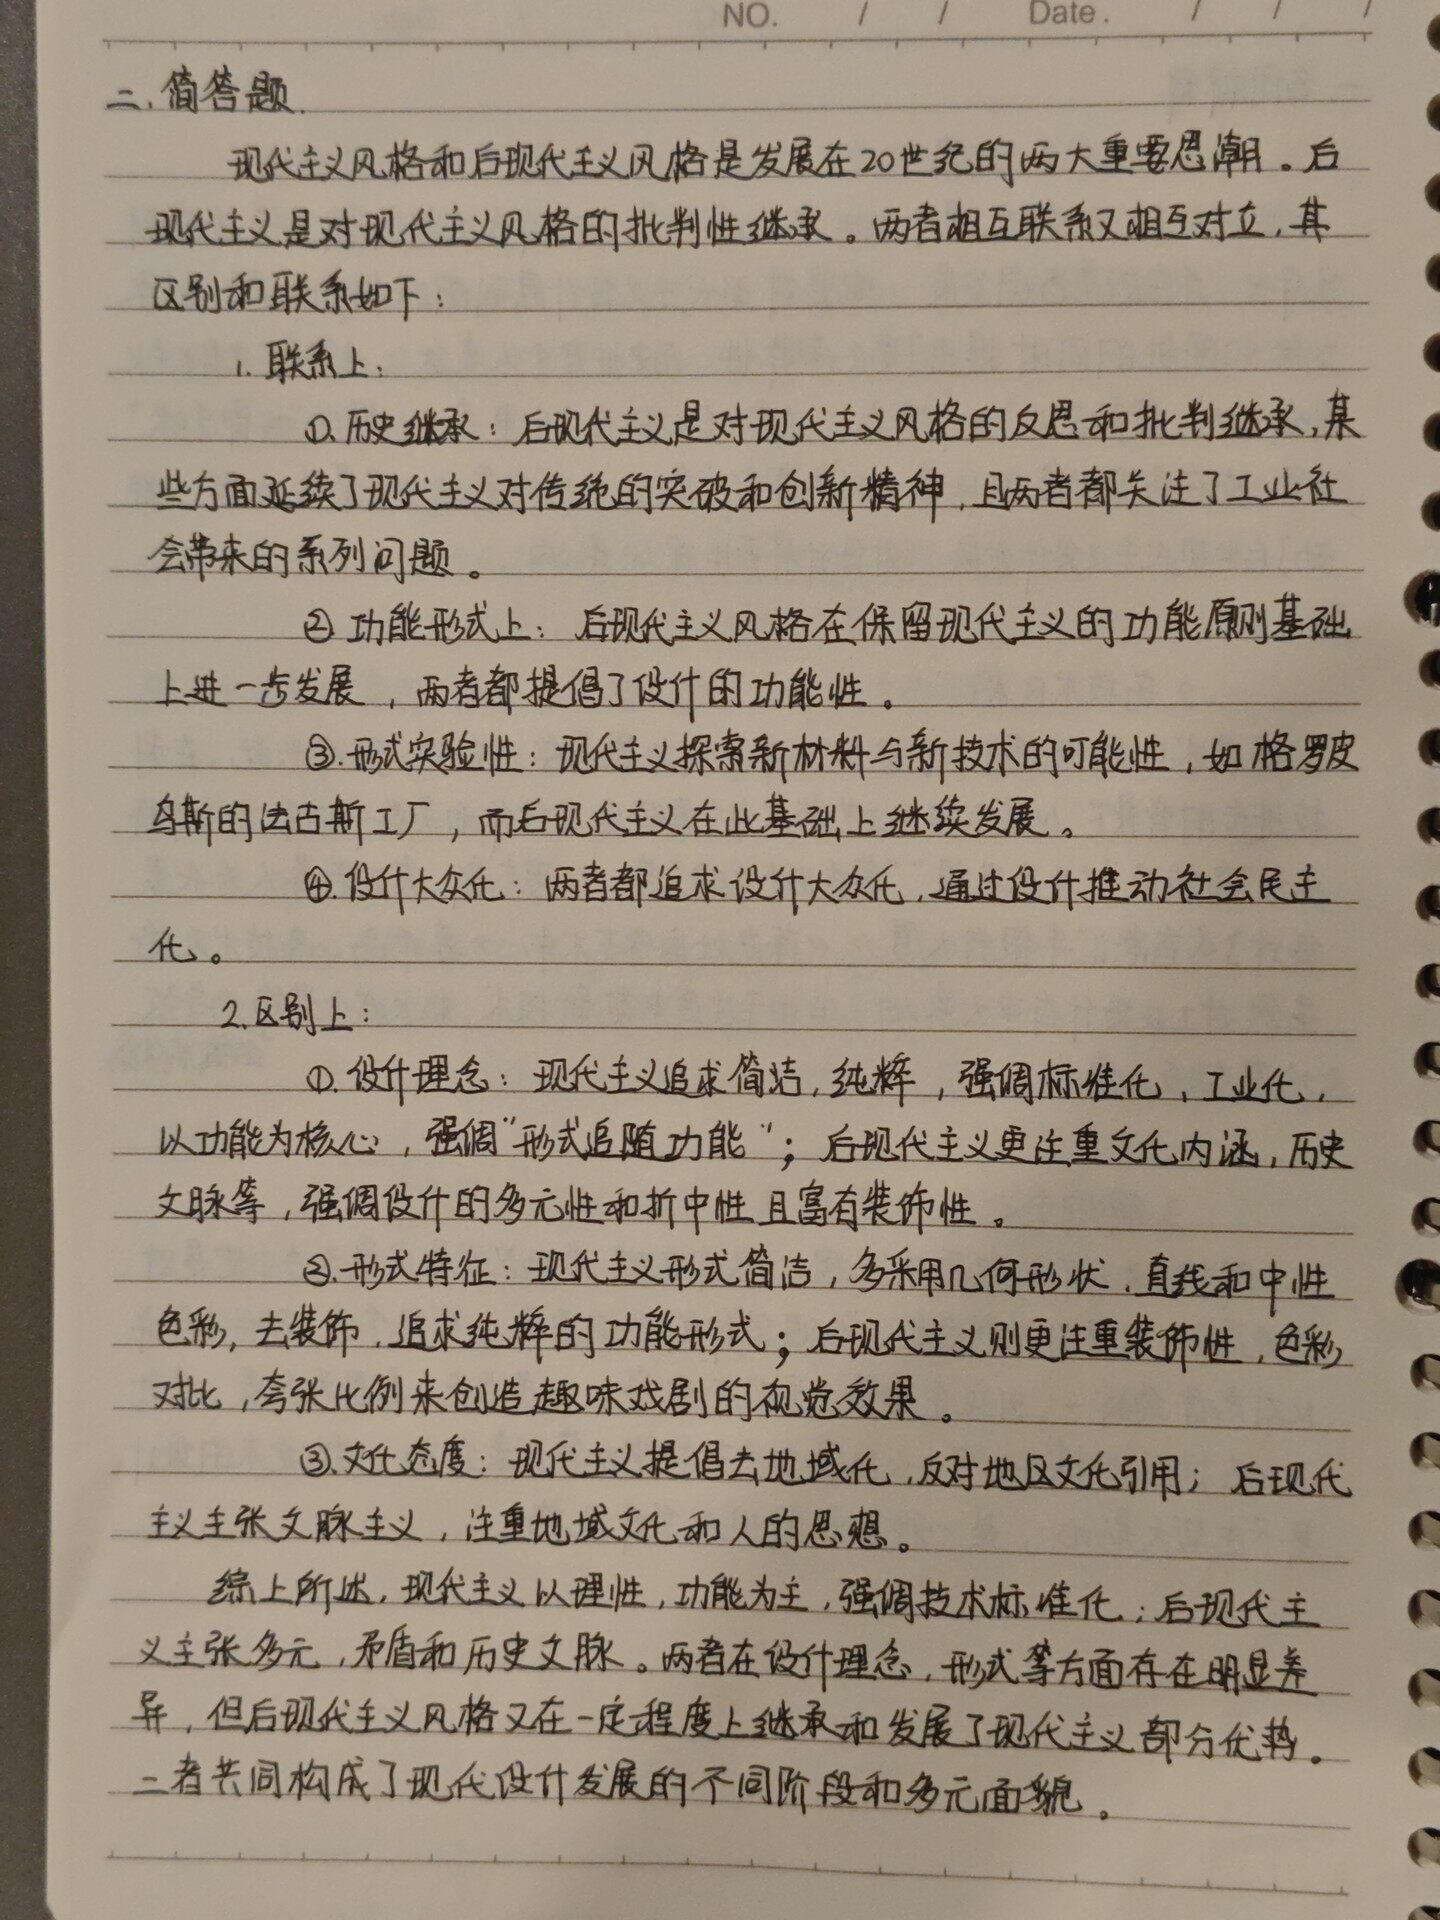 NO. / / Date. / / /
二、简答题.
现代主义风格和后现代主义风格是发展在20世纪的两大重要思潮。后
现代主义是对现代主义风格的批判性继承。两者相互联系又相互对立，其
区别和联系如下：
1. 联系上：
①. 历史继承：后现代主义是对现代主义风格的反思和批判继承，某
些方面延续了现代主义对传统的突破和创新精神，且两者都关注了工业社
会带来的系列问题。
② 功能形式上：后现代主义风格在保留现代主义的功能原则基础
上进一步发展，两者都提倡了设计的功能性。
③. 形式实验性：现代主义探索新材料与新技术的可能性，如格罗皮
乌斯的法古斯工厂，而后现代主义在此基础上继续发展。
④. 设计大众化：两者都追求设计大众化，通过设计推动社会民主
化。
2. 区别上：
①. 设计理念：现代主义追求简洁，纯粹，强调标准化，工业化，
以功能为核心，强调“形式追随功能”；后现代主义更注重文化内涵，历史
文脉等，强调设计的多元性和折中性且富有装饰性。
②. 形式特征：现代主义形式简洁，多采用几何形状，直线和中性
色彩，去装饰，追求纯粹的功能形式；后现代主义则更注重装饰性，色彩
对比，夸张比例来创造趣味戏剧的视觉效果。
③. 文化态度：现代主义提倡去地域化，反对地区文化引用；后现代
主义主张文脉主义，注重地域文化和人的思想。
综上所述，现代主义以理性，功能为主，强调技术标准化；后现代主
义主张多元，矛盾和历史文脉。两者在设计理念，形式等方面存在明显差
异，但后现代主义风格又在一定程度上继承和发展了现代主义部分优势。
二者共同构成了现代设计发展的不同阶段和多元面貌。